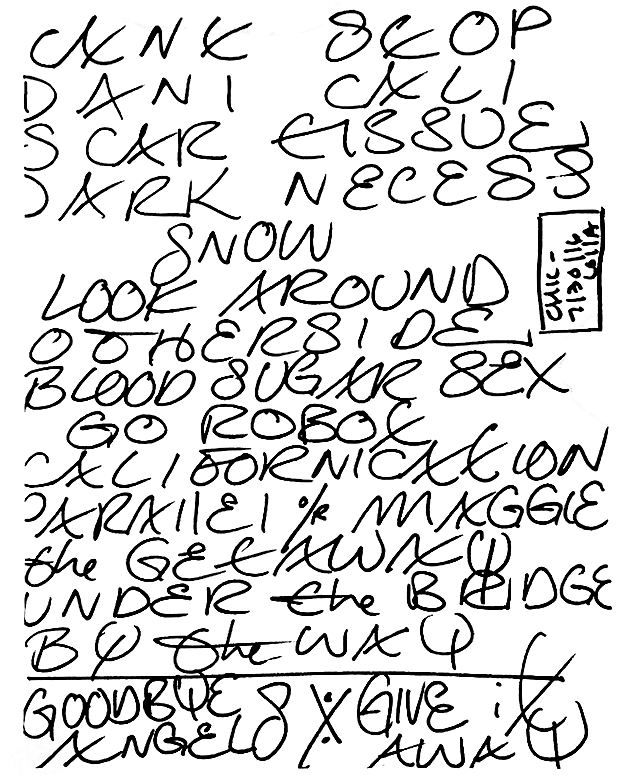 CANT STOP
DANI CALI
SCAR TISSUE
DARK NECESS
SNOW
CHIC -
7/30/16
LOLLA
LOOK AROUND
OTHERSIDE
BLOOD SUGAR SEX
GO ROBOT
CALIFORNICATION
PARAllEl % MAGGIE
the GETAWAY
UNDER the BRIDGE
BY the WAY
GOODBYE GIVE iT
ANGELS % AWAY